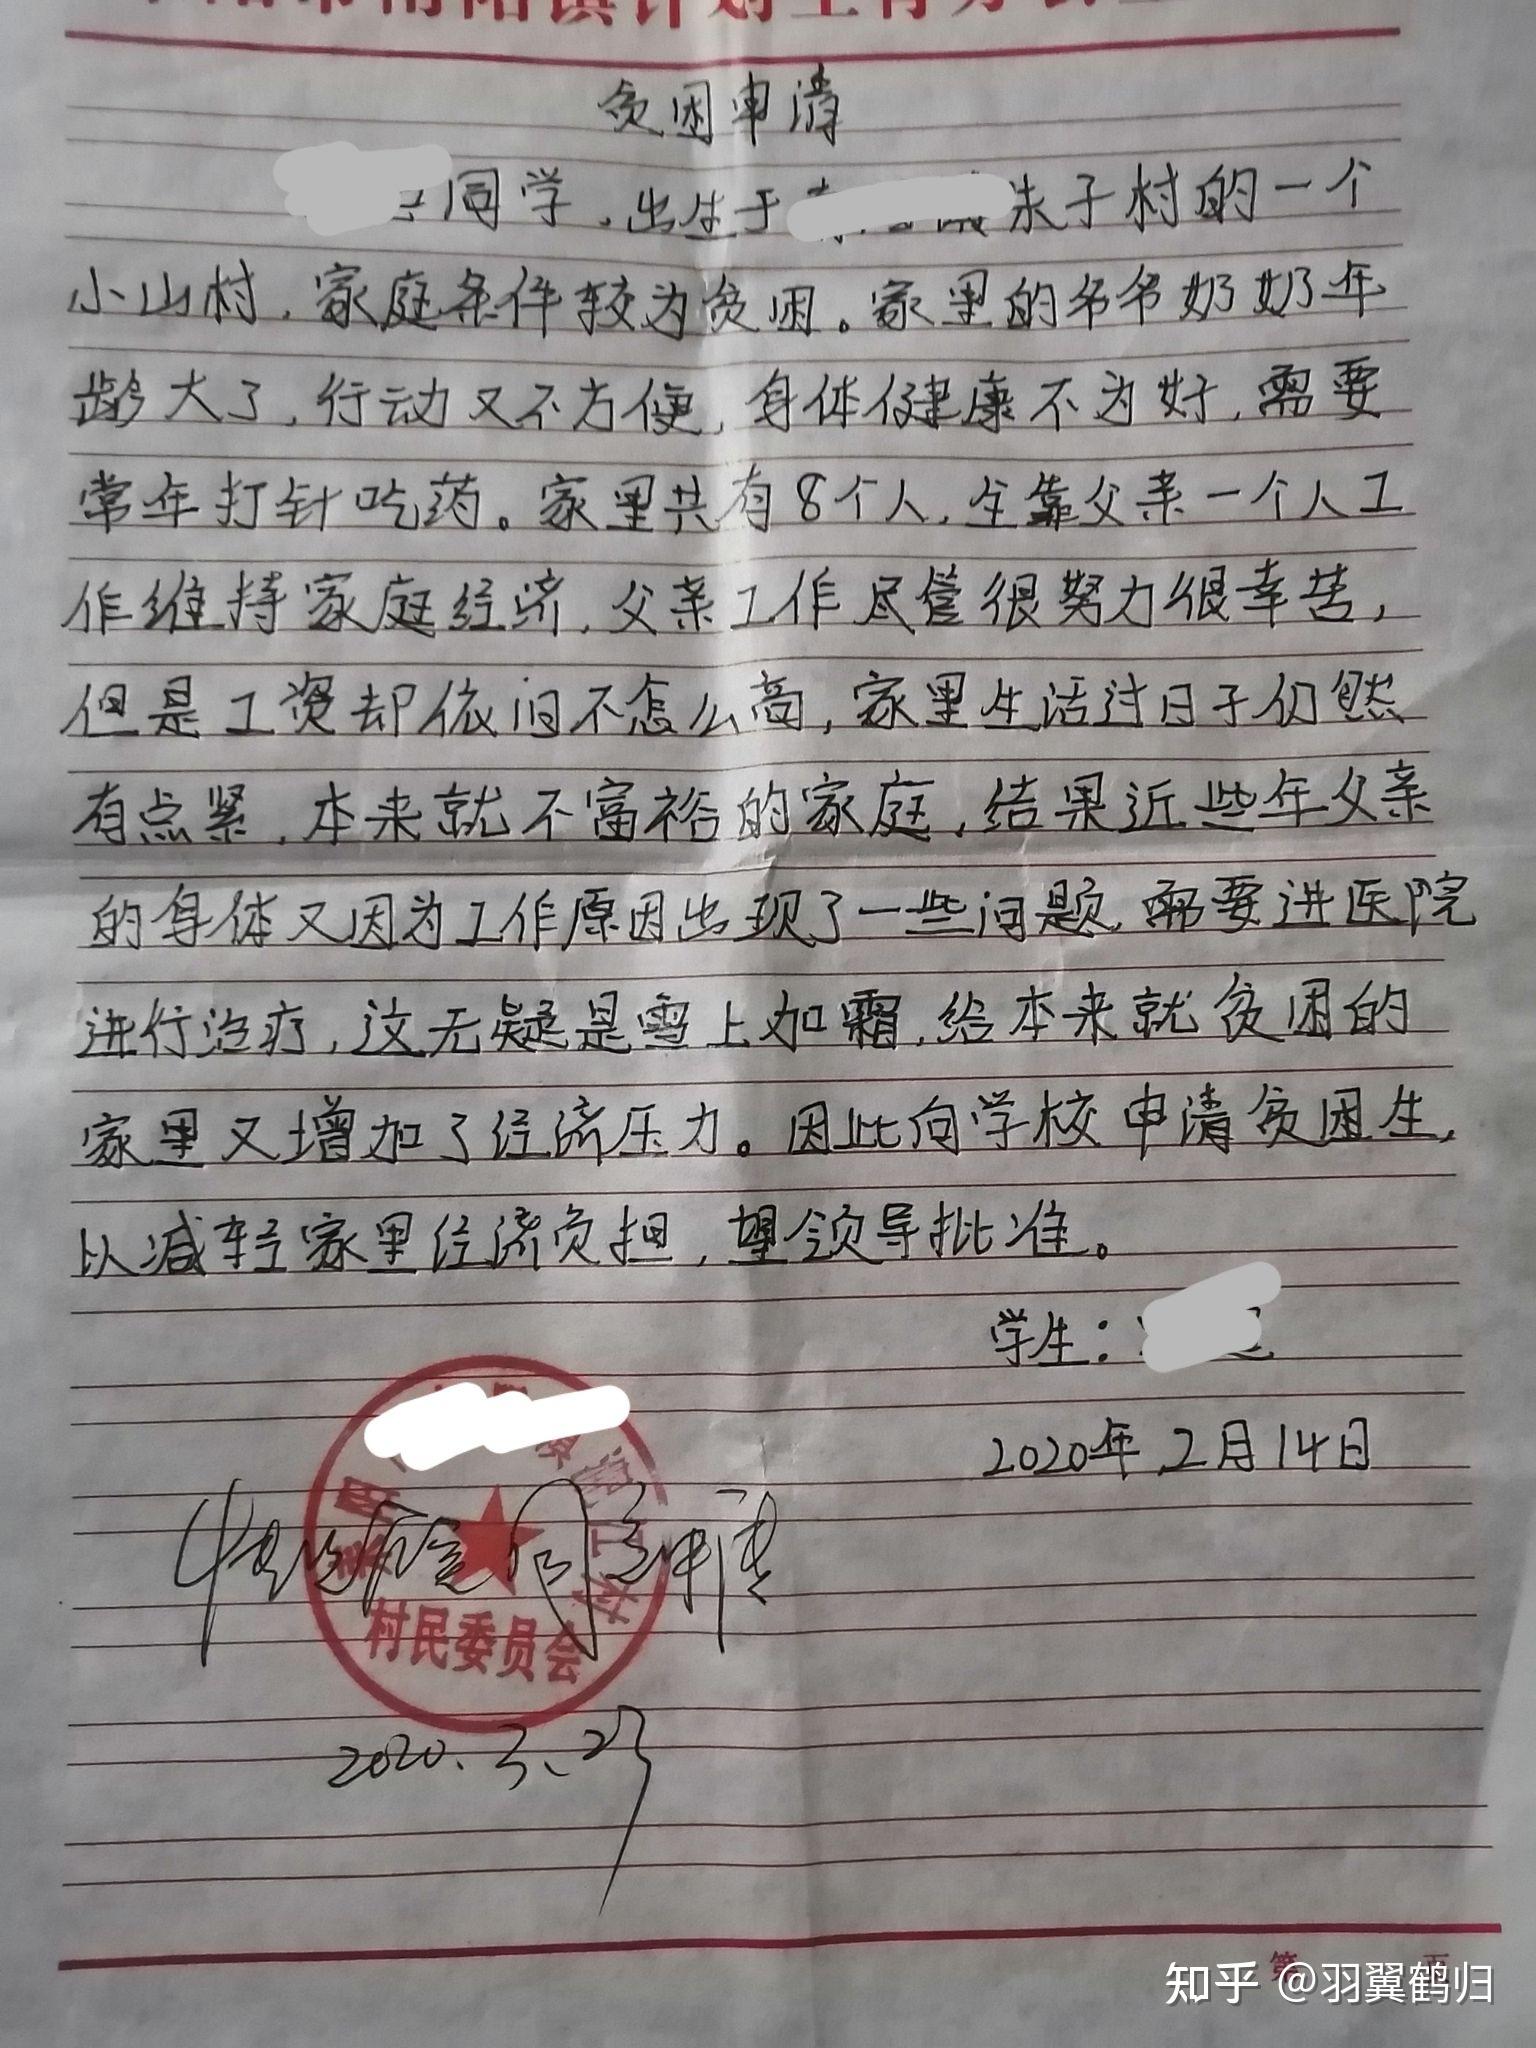 贫困申请
同学，出生于朱子村的一个
小山村，家庭条件较为贫困。家里的爷爷奶奶年
龄大了，行动又不方便，身体健康不为好，需要
常年打针吃药。家里共有8个人，全靠父亲一个人工
作维持家庭经济，父亲工作尽管很努力很幸苦，
但是工资却依旧不怎么高，家里生活过日子仍然
有点紧，本来就不富裕的家庭，结果近些年父亲
的身体又因为工作原因出现了一些问题，需要进医院
进行治疗，这无疑是雪上加霜，给本来就贫困的
家里又增加了经济压力。因此向学校申请贫困生，
以减轻家里经济负担，望领导批准。
学生：
2020年2月14日
村民委员会
2020.3.23
第 页
知乎 @羽翼鹤归